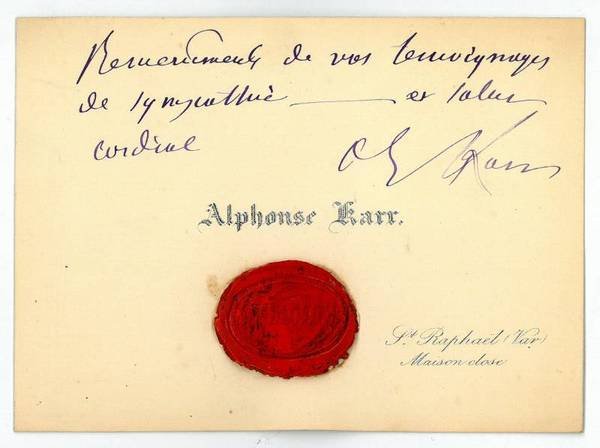 Remerciements de vos temoignages
de sympathie — et salut
cordial
A Karr
Alphonse Karr.
St. Raphaël (Var)
Maison close